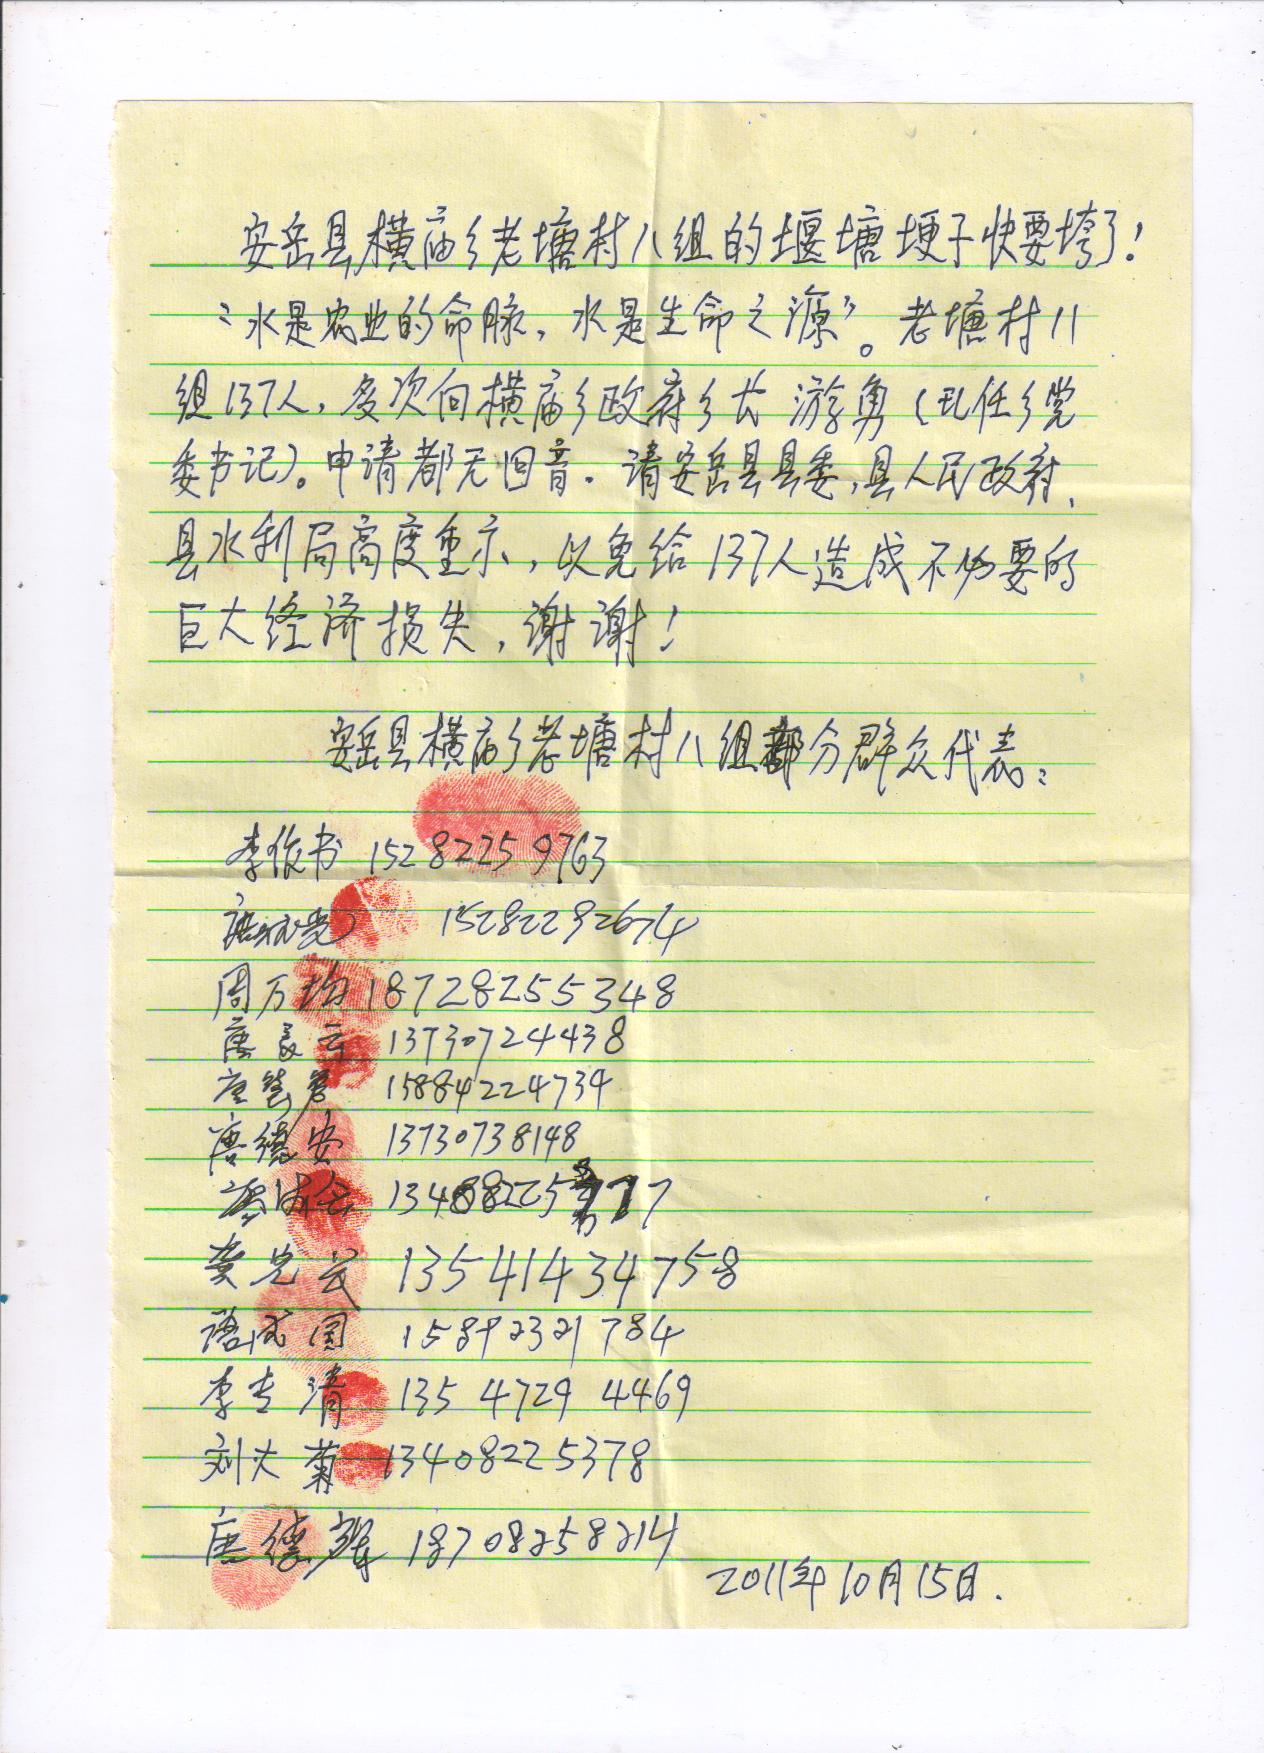 安岳县横庙乡老塘村八组的堰塘埂子快要垮了!
“水是农业的命脉,水是生命之源”。老塘村八
组137人,多次向横庙乡政府乡长游勇(现任乡党
委书记)。申请都无回音。请安岳县县委,县人民政府、
县水利局高度重示,以免给137人造成不必要的
巨大经济损失,谢谢!
安岳县横庙乡老塘村八组部分群众代表:
李俊书 15282259763
15282292674
周万均 18728255348
唐 13730724438
唐 15884224734
唐德安 13730738148
134
龚光 13541434758
成国 15892321784
李 清 13547294469
刘 菊 13408225378
唐德辉 18708258214
2011年10月15日.